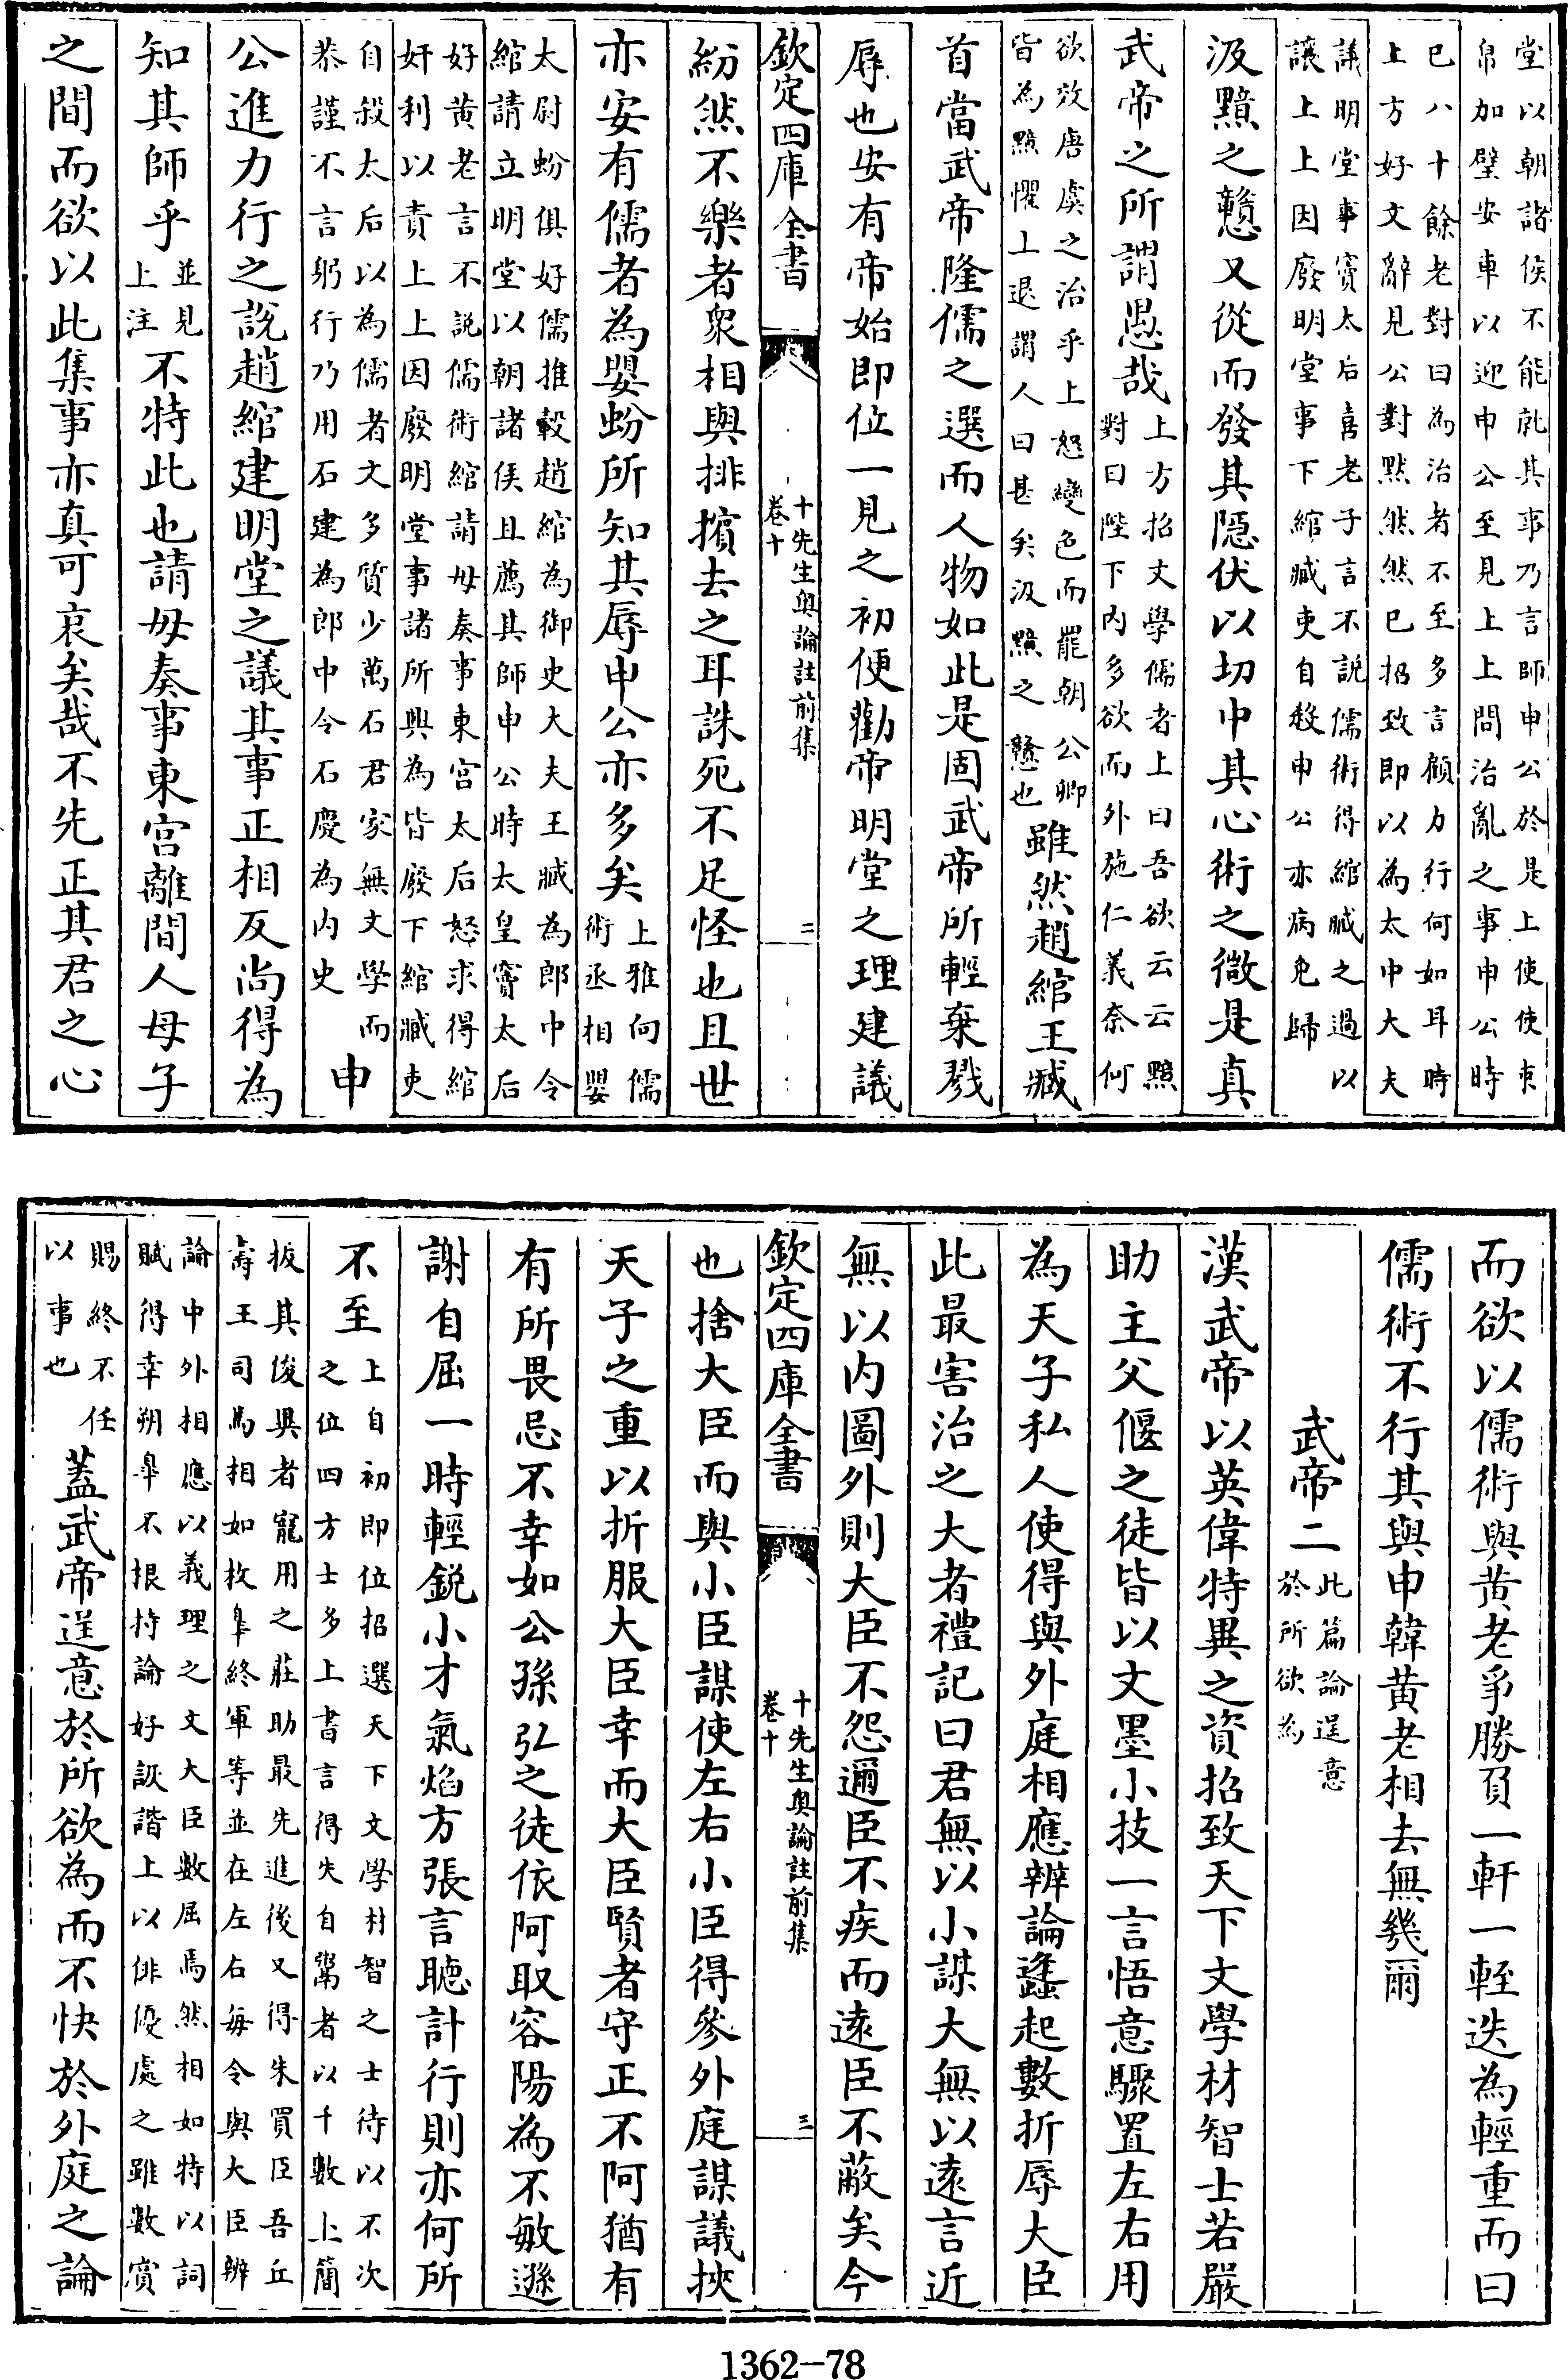 堂以朝諸侯不能就其事乃言師申公於是上使使束
帛加璧安車以迎申公至見上上問治亂之事申公時
已八十餘老對曰為治者不至多言顧力行何如耳時
上方好文辭見公對默然然已招致即以為太中大夫
議明堂事竇太后喜老子言不說儒術得綰臧之過以
讓上上因廢明堂事下綰臧吏自殺申公亦病免歸
汲黯之戇又從而發其隱伏以切中其心術之微是真
武帝之所謂愚哉
上方招文學儒者上曰吾欲云云黯
對曰陛下内多欲而外施仁義奈何
欲效唐虞之治乎上怒變色而罷朝公卿
皆為黯懼上退謂人曰甚矣汲黯之戇也
雖然趙綰王臧
首當武帝隆儒之選而人物如此是固武帝所輕棄戮
辱也安有帝始即位一見之初便勸帝明堂之理建議
欽定四庫全書
十先生奥論註前集
卷十
二
紛然不樂者衆相與排擯去之耳誅死不足怪也且世
亦安有儒者為嬰蚡所知其辱申公亦多矣
上雅向儒
術丞相嬰
太尉蚡俱好儒推轂趙綰為御史大夫王臧為郎中令
綰請立明堂以朝諸侯且薦其師申公時太皇竇太后
好黄老言不說儒術綰請毋奏事東宫太后怒求得綰
奸利以責上上因廢明堂事諸所興為皆廢下綰臧吏
自殺太后以為儒者文多質少萬石君家無文學而
恭謹不言躬行乃用石建為郎中令石慶為内史
申
公進力行之說趙綰建明堂之議其事正相反尚得為
知其師乎
並見
上注
不特此也請毋奏事東宫離間人母子
之間而欲以此集事亦真可哀矣哉不先正其君之心
而欲以儒術與黄老爭勝負一軒一輊迭為輕重而曰
儒術不行其與申韓黄老相去無幾爾
武帝二
此篇論逞意
於所欲為
漢武帝以英偉特異之資招致天下文學材智士若嚴
助主父偃之徒皆以文墨小技一言悟意驟置左右用
為天子私人使得與外庭相應辨論蠭起數折辱大臣
此最害治之大者禮記曰君無以小謀大無以遠言近
無以内圖外則大臣不怨邇臣不疾而遠臣不蔽矣今
欽定四庫全書
十先生奥論註前集
卷十
三
也捨大臣而與小臣謀使左右小臣得參外庭謀議挾
天子之重以折服大臣幸而大臣賢者守正不阿猶有
有所畏忌不幸如公孫弘之徒依阿取容陽為不敏遜
謝自屈一時輕銳小才氣焰方張言聽計行則亦何所
不至
上自初即位招選天下文學材智之士待以不次
之位四方士多上書言得失自鬻者以千數上簡
拔其俊異者寵用之莊助最先進後又得朱買臣吾丘
壽王司馬相如枚臯終軍等並在左右每令與大臣辨
論中外相應以義理之文大臣數屈焉然相如特以詞
賦得幸朔臯不根持論好詼諧上以俳優處之雖數賞
賜終不任
以事也
蓋武帝逞意於所欲為而不快於外庭之論
1362-78